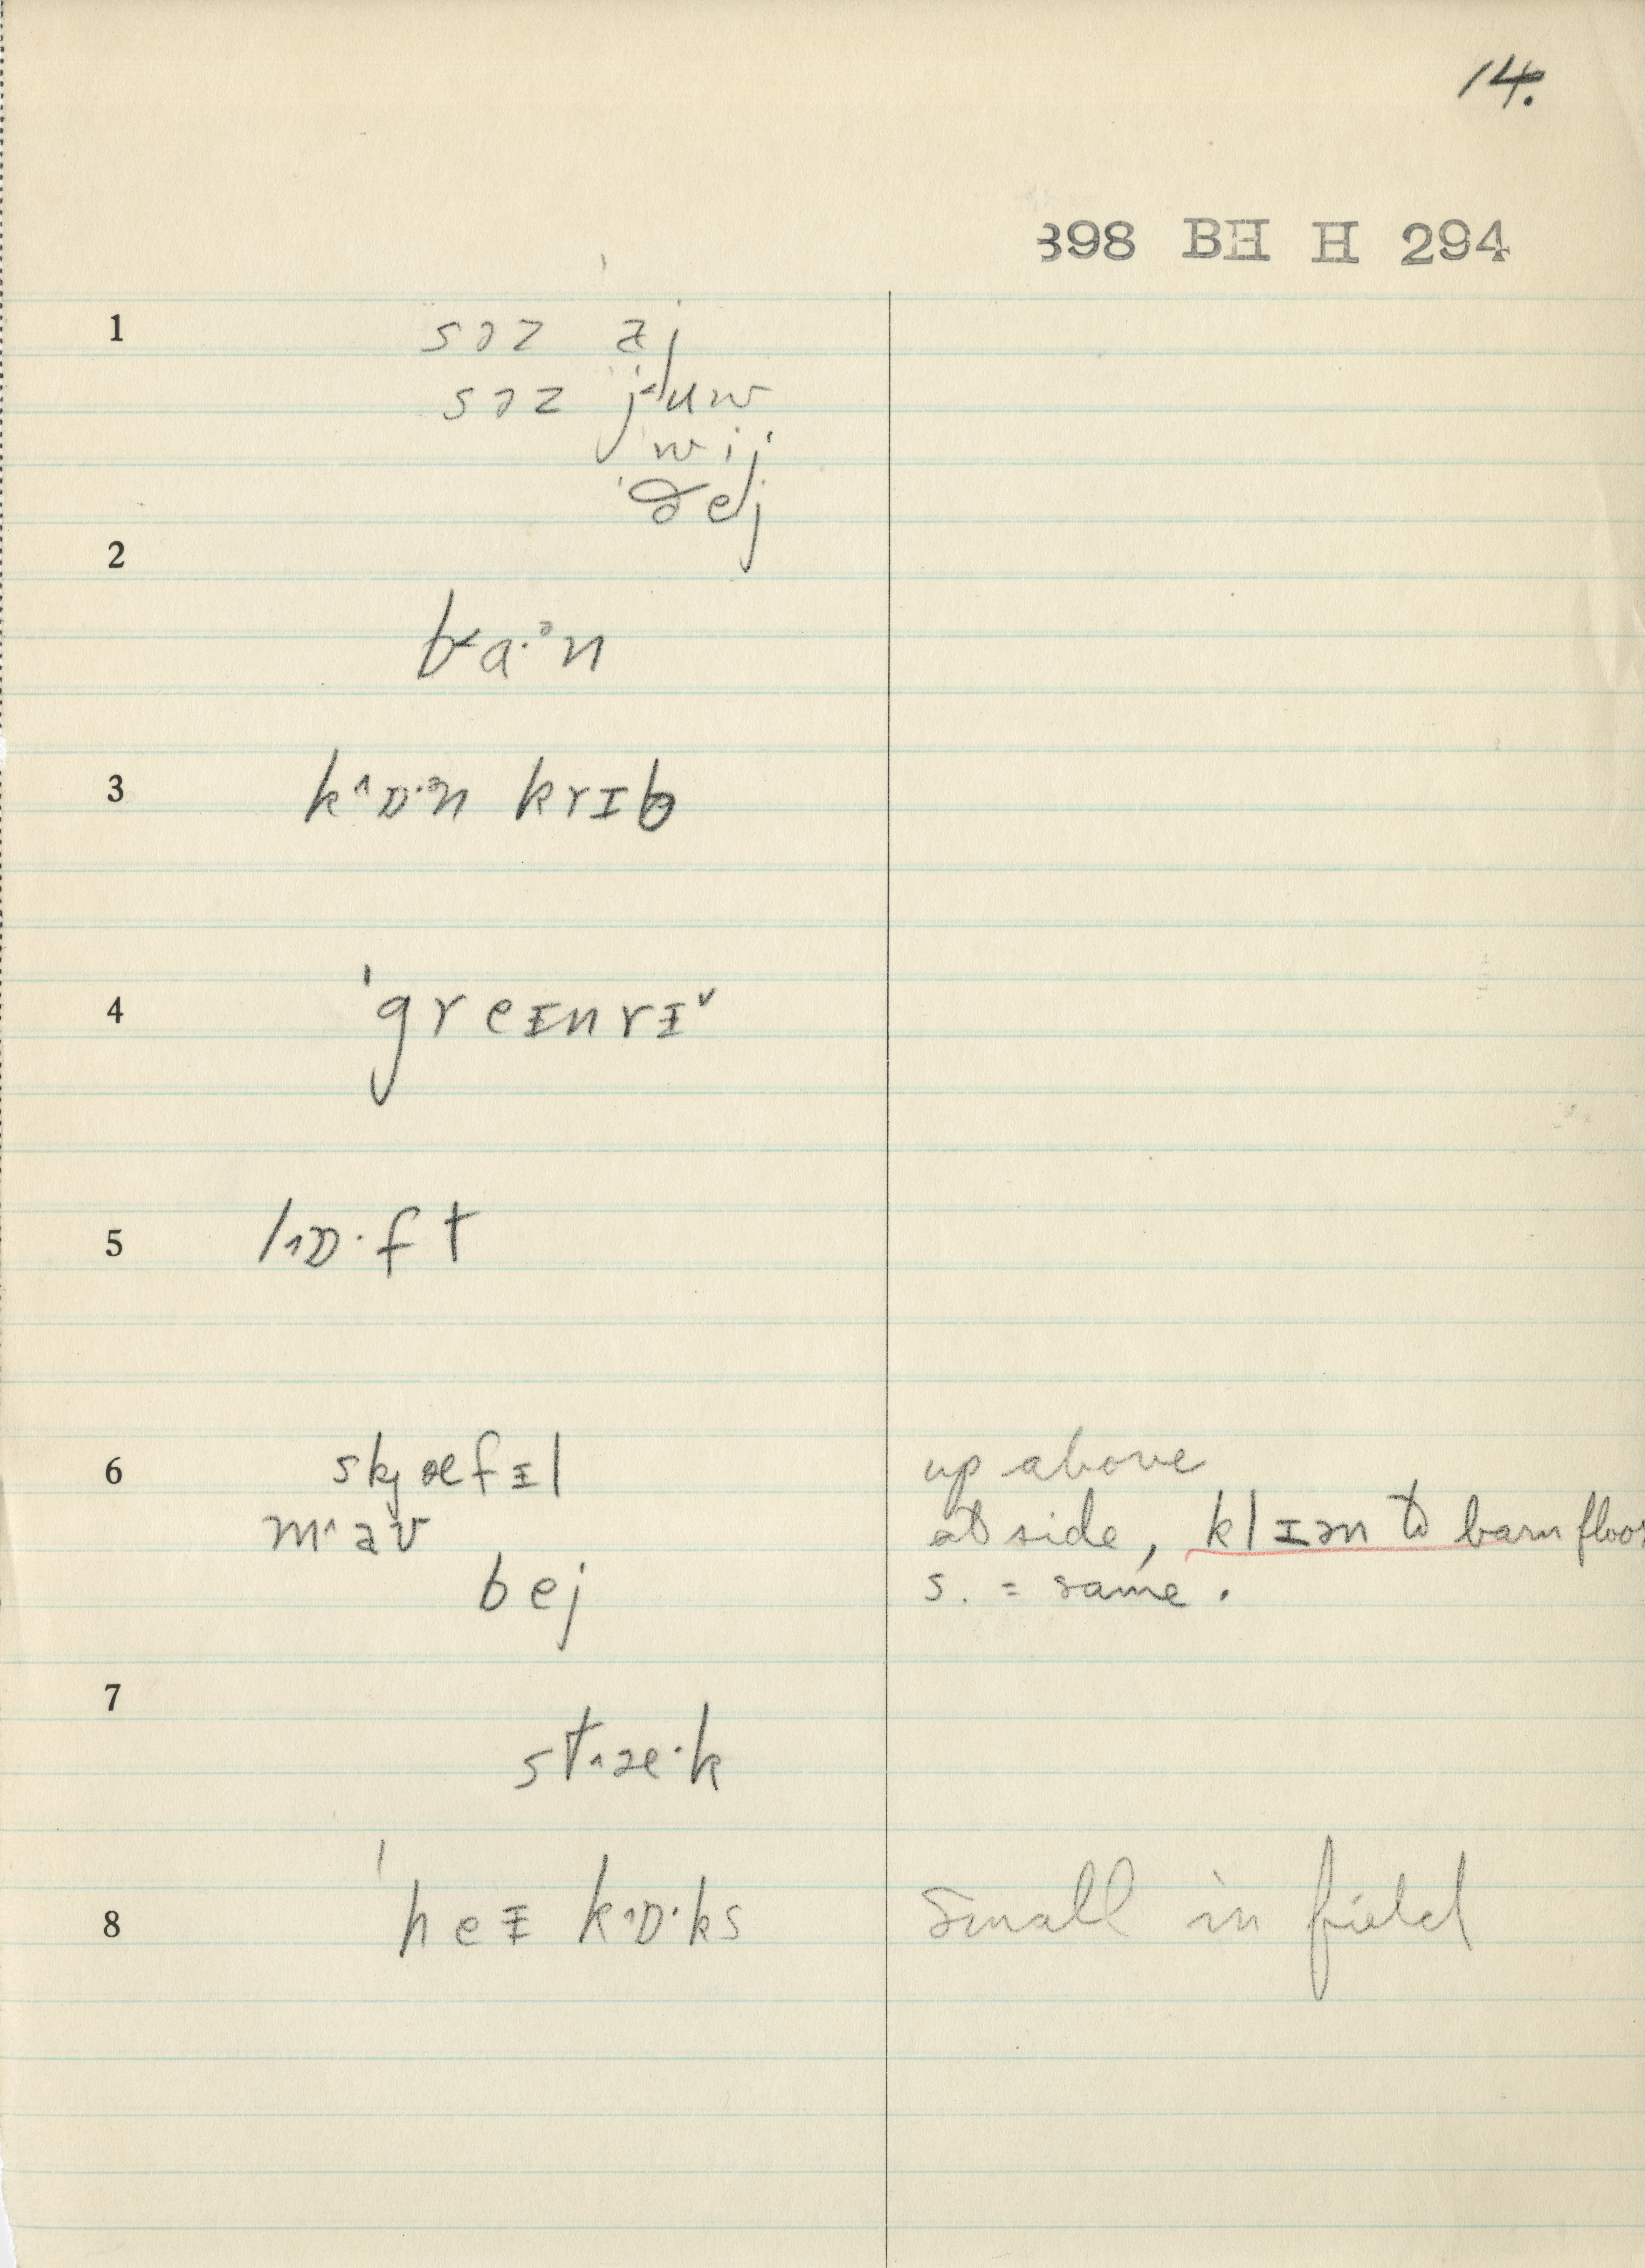 14.
398 BH H 294
1 səz aj
səz j˂uw
wij
ðej
2
b˂a·ᵊn
3 k˄ɒ·ᵊn krɪb
4 ˈgreɪnrɪ˅
5 l˄ɒ·ft
6 skjæfɪl up above
m˄aʊ at side, klɪən to barn floor
bej s. = same.
7
st˄æ·k
8 ˈheɪ kɒ·ks Small in field